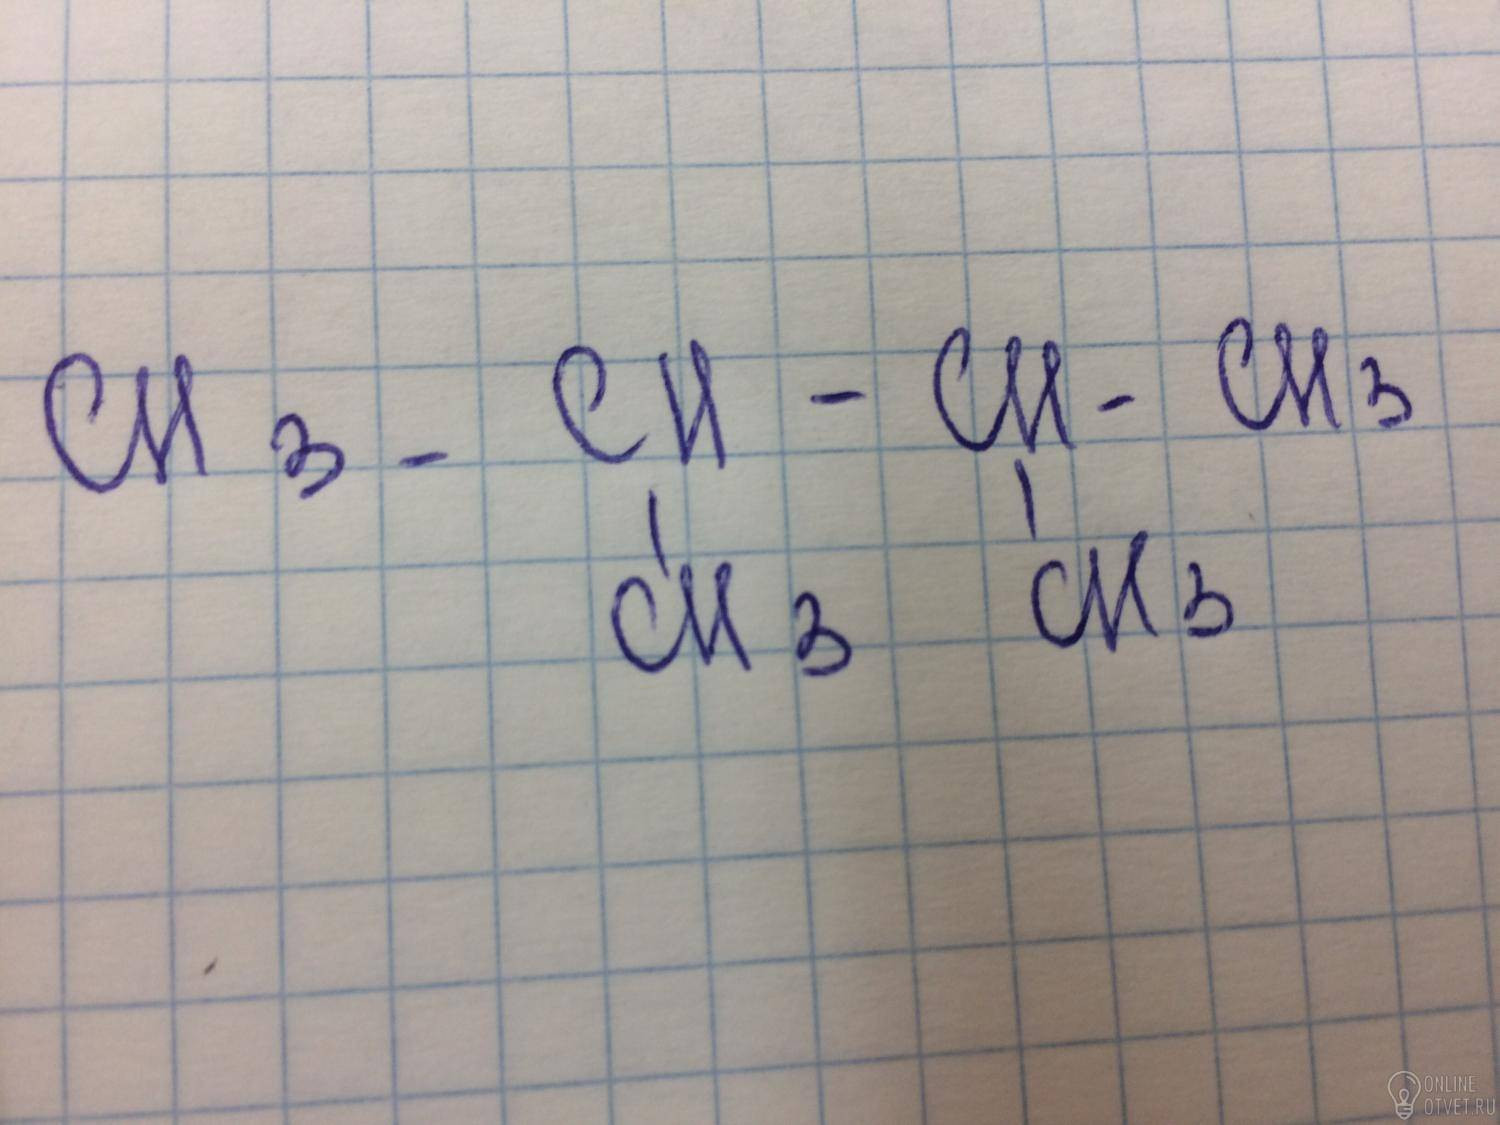 CH3 - CH - CH - CH3
CH3 CH3
ONLINE
OTVET.RU